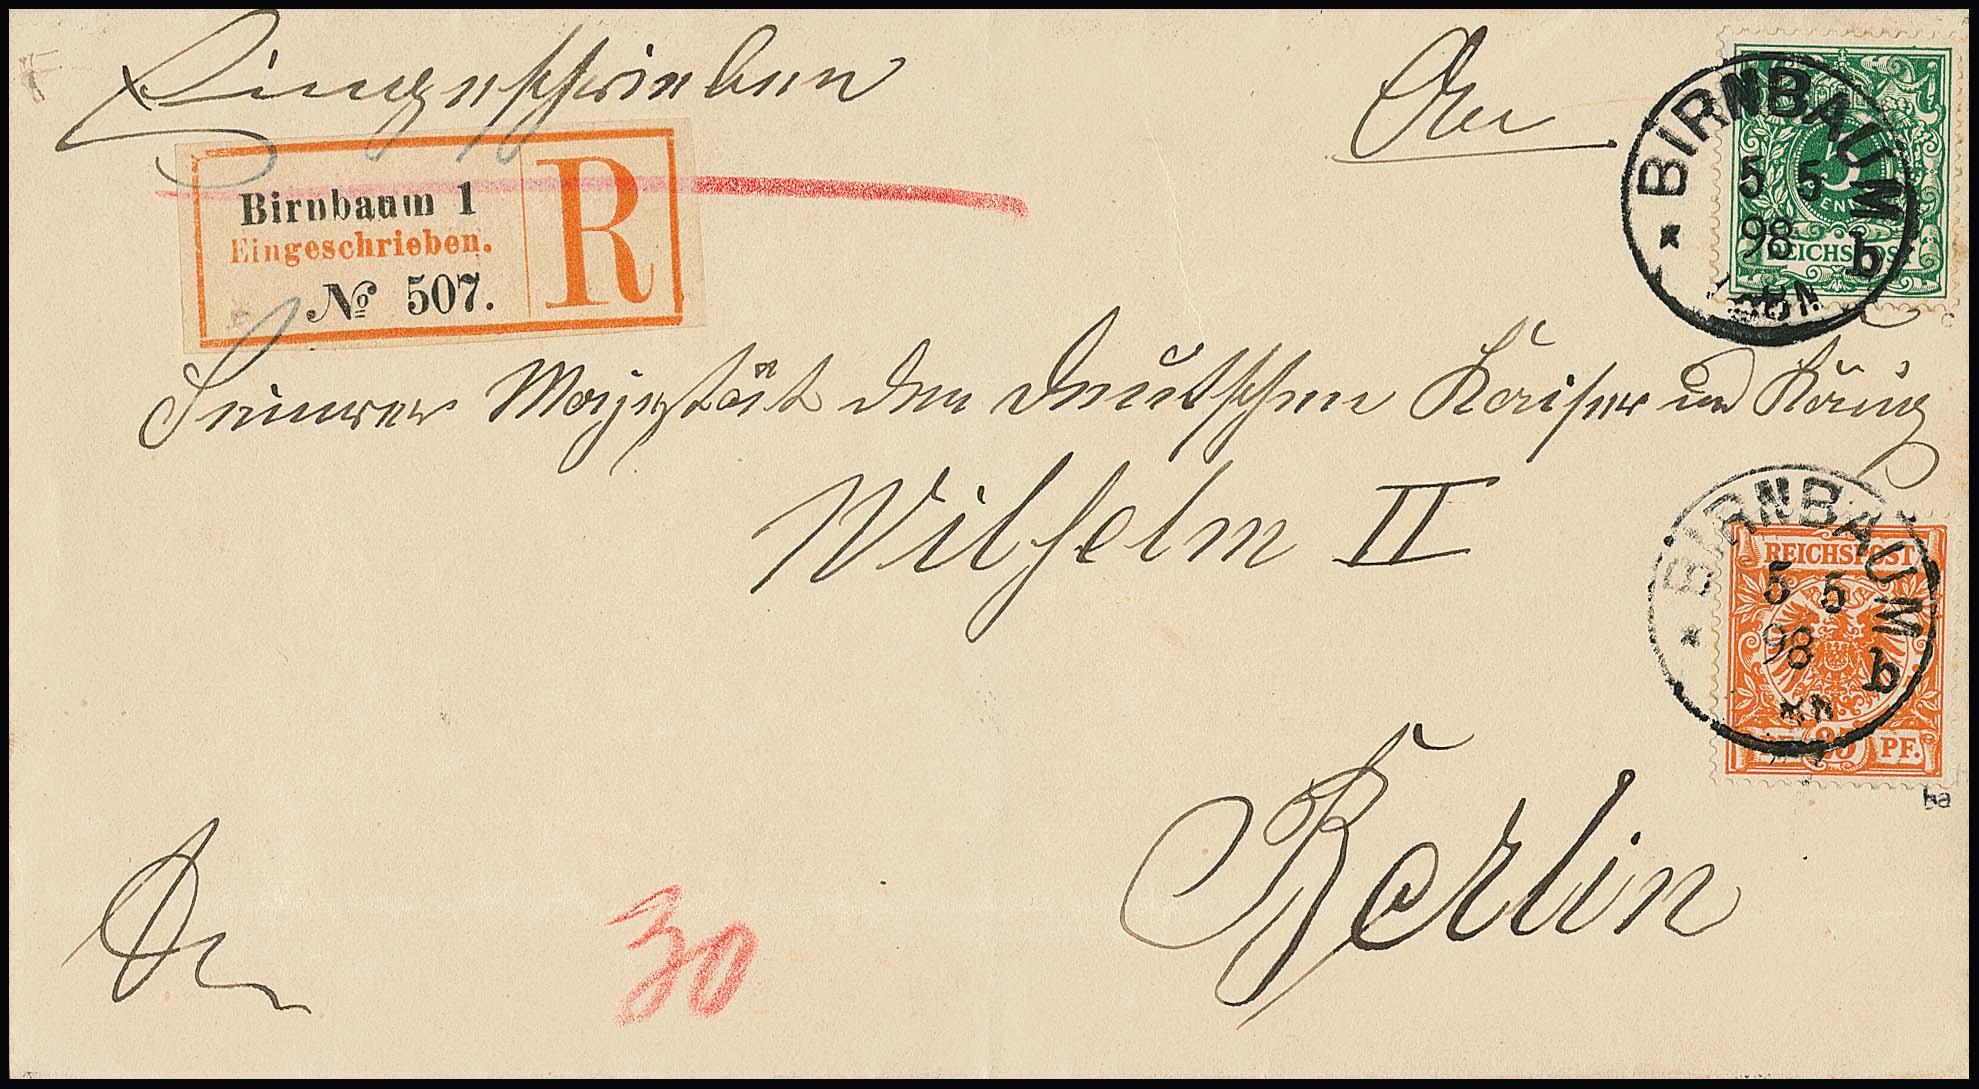 Eingeschrieben
An
Birnbaum 1
Eingeschrieben.
R
№ 507.
BIRNBAUM
5 5
98
b
5
REICHSPOST
Seiner Majestät dem Deutschen Kaiser und König
Wilhelm II
BIRNBAUM
5 5
98
b
REICHSPOST
25 PF.
Berlin
30